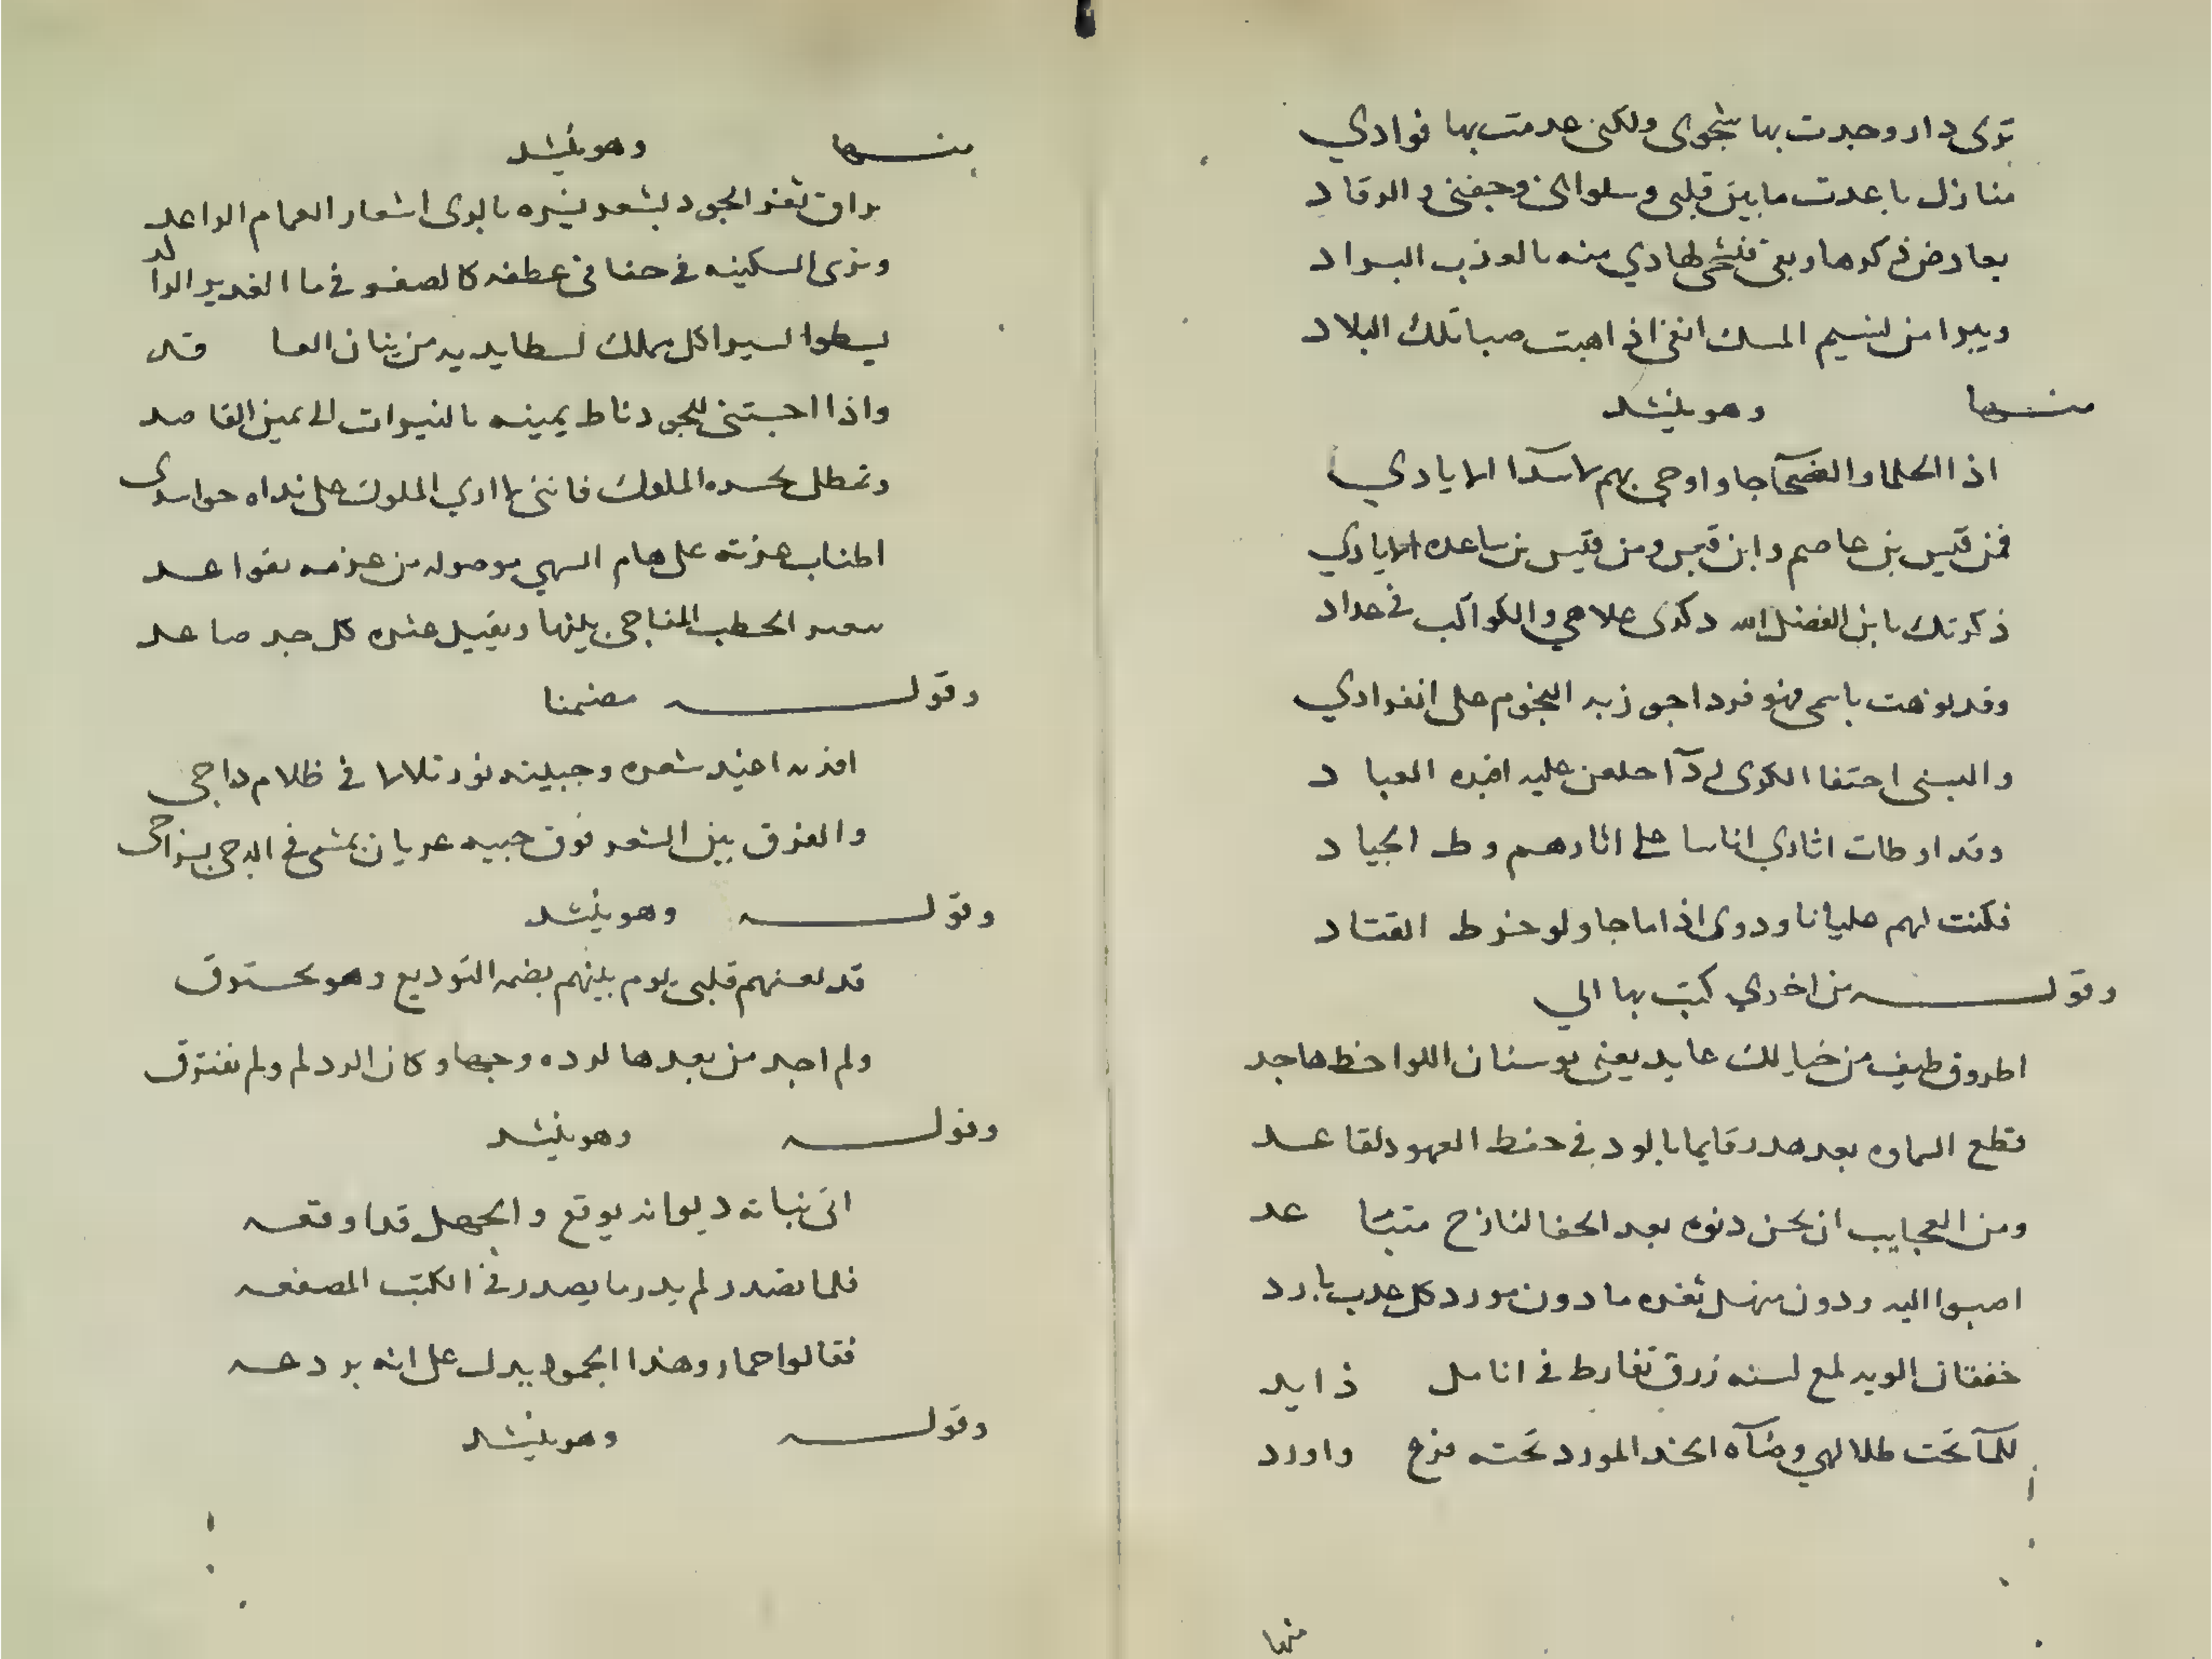 توى دار وجدت بها شجوى ولكن عدمت بها فوادي
منازل باعدت ما بين قلبى وسلوانى وجفنى والرقاد
يعارض ذكرها ريقى فيشجى لهادي منه بالعذب البراد
ويبرا من نسيم المسك انفى اذا هبت صبا تلك البلاد
منها وهو ينشد
اذا الحلما والفصحآ جاوا وجى بهم الايادي
فمن قيس بن عاصم وابن قيس ومن قيس بن ساعده الايادي
ذكرتك يا بن الفضل الله ذكرى علاهي والكواكب فى حداد
وقد نوهت باسمى فهو فرد اجوزبه النجوم على انفرادي
والبسنى احتفا الكرى ردآ احلعن عليه افيده العباد
وقد اوطات اثاري اناسا على اثارهم وط الجياد
فكنت لهم عليا نا ودوى اذا ما جاو لو خرط القتاد
وقوله من اخري كتب بها الي
اطروق طيف من خيالك عايد يعنى بوسنان اللواحظ هاجد
قطع السماوه بعد هدر قايما بالود فى حفظ العهود لقاعد
ومن العجايب ان يحن دنوه بعد الحفا لنازح متباعد
اصبوا اليه ودون منهل ثغره ما دون مورد كل عدب بارد
خفقان الويه لمع لسنه زرق تفارط فى انامل ذايد
للمآ تحت طلا لهي وضآه الخد المورد تحته فزع واورد
منها
منها وهو ينشد
براق ثغر الجود يشعر بشره بالرى اشعار الغمام الراعد
وترى السكينه فى حنا فى عطفه كالصفو فى ما الغدير الراكد
يسطوا السيرا كل مهلك لسطا يديه من بنان العاقد
واذا احبتنى للجود ناط يمينه بالنيرات الى يمين القاصد
وتمطل بحسده الملوك فاننى لا اري الملوك على نداه حواسدى
اطناب عزته على هام السهي موصوله من عزمه بقواعد
الخطب المفاجى بلينها ويقيل عثره كل جد صاعد
وقوله مضمنا
افديه اغيد شعره وجبينه نور تلالا فى ظلام داجى
والفرق بين الشعر فوق جبينه عريان يمشى فى الدجى بسراج
وقوله وهو ينشد
قد لعنهم قلبى يوم بينهم بضمه التوديع وهو محترق
ولم اجد من بعدها لرده وجها وكان الرد لم ولم نفترق
وقوله وهو ينشد
اتى نباته ديوانه يوقع والجهل قد اوقعه
فلما تصدر لم يدر ما يصدر فى الكتب المصقعه
فقالوا حمار وهذا الجمود يدل على انه بردعه
وقوله وهو ينشد